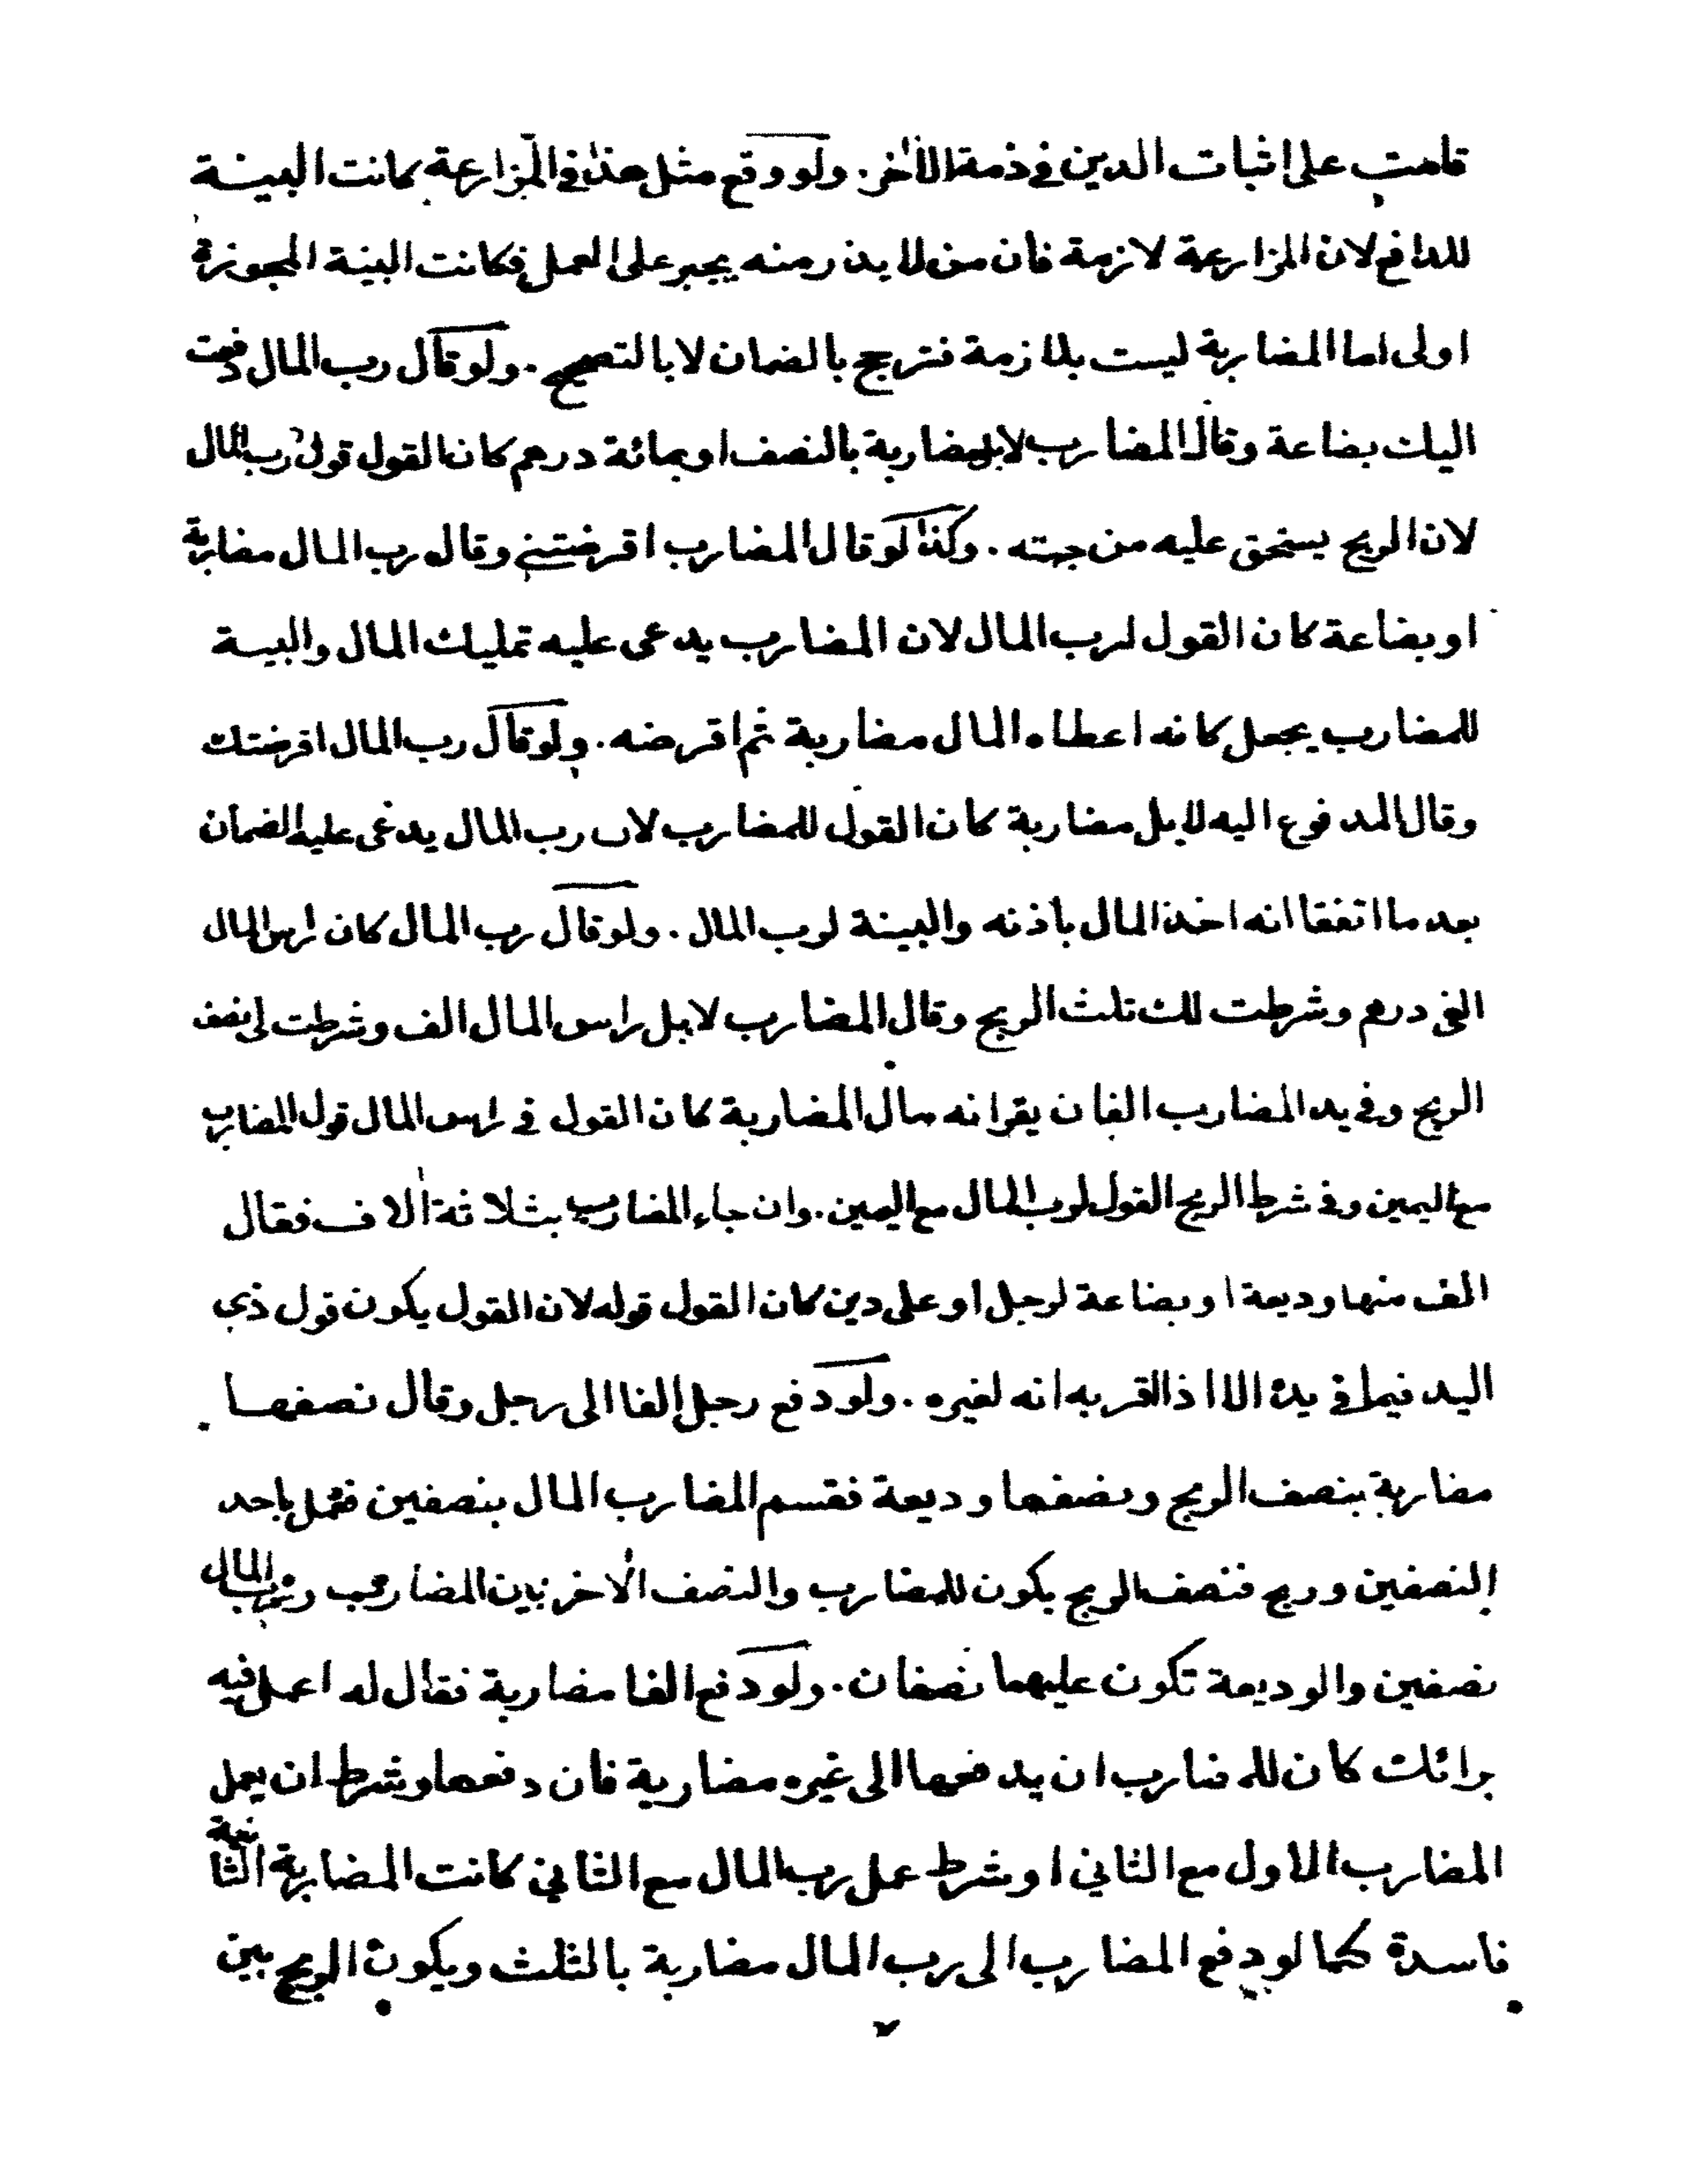 قامت على اثبات الدين في ذمة الآخر. ولو وقع مثل هذا في المزارعة كانت البينة
للدافع لان المزارعة لازمة فأن من لا يذر منه يجبر على العمل فكانت البينة المجوزة
اولى اما المضاربة ليست بلازمة فترجح بالضمان لا بالتصحيح. ولو قال رب المال دفعت
اليك بضاعة وقال المضارب لا بل مضاربة بالنصف او بمائة درهم كان القول قول رب المال
لان الربح يستحق عليه من جهته. وكذا لو قال المضارب اقرضتني وقال رب المال مضاربة
او بضاعة كان القول لرب المال لان المضارب يدعى عليه تمليك المال والبينة
للمضارب يجعل كانه اعطاه المال مضاربة ثم اقرضه. ولو قال رب المال اقرضتك
وقال المدفوع اليه لا بل مضاربة كان القول للمضارب لان رب المال يدعى عليه الضمان
بعد ما اتفقا انه اخذ المال باذنه والبينة لرب المال. ولو قال رب المال كان راس المال
الفى درهم وشرطت لك ثلث الربح وقال المضارب لا بل راس المال الف وشرطت لي نصف
الربح وفي يد المضارب الفان يقر انه مال المضاربة كان القول في راس المال قول المضارب
مع اليمين وفي شرط الربح القول لرب المال مع اليمين. وان جاء المضارب بثلاثة آلاف فقال
الف منها وديعة او بضاعة لرجل او على دين كان القول قوله لان القول يكون قول ذي
اليد فيما في يده الا اذا اقر به انه لغيره. ولو دفع رجل الفا الى رجل وقال نصفها
مضاربة بنصف الربح ونصفها وديعة فقسم المضارب المال بنصفين فعمل باحد
النصفين وربح فنصف الربح يكون للمضارب والنصف الآخر بين المضارب ورب المال
نصفين والوديعة تكون عليهما نصفان. ولو دفع الفا مضاربة فقال له اعمل فيه
برائك كان للمضارب ان يدفعها الى غيره مضاربة فان دفعها وشرط ان يعمل
المضارب الاول مع الثاني او شرط عمل رب المال مع الثاني كانت المضاربة الثانية
فاسدة كما لو دفع المضارب الى رب المال مضاربة بالثلث ويكون الربح بين